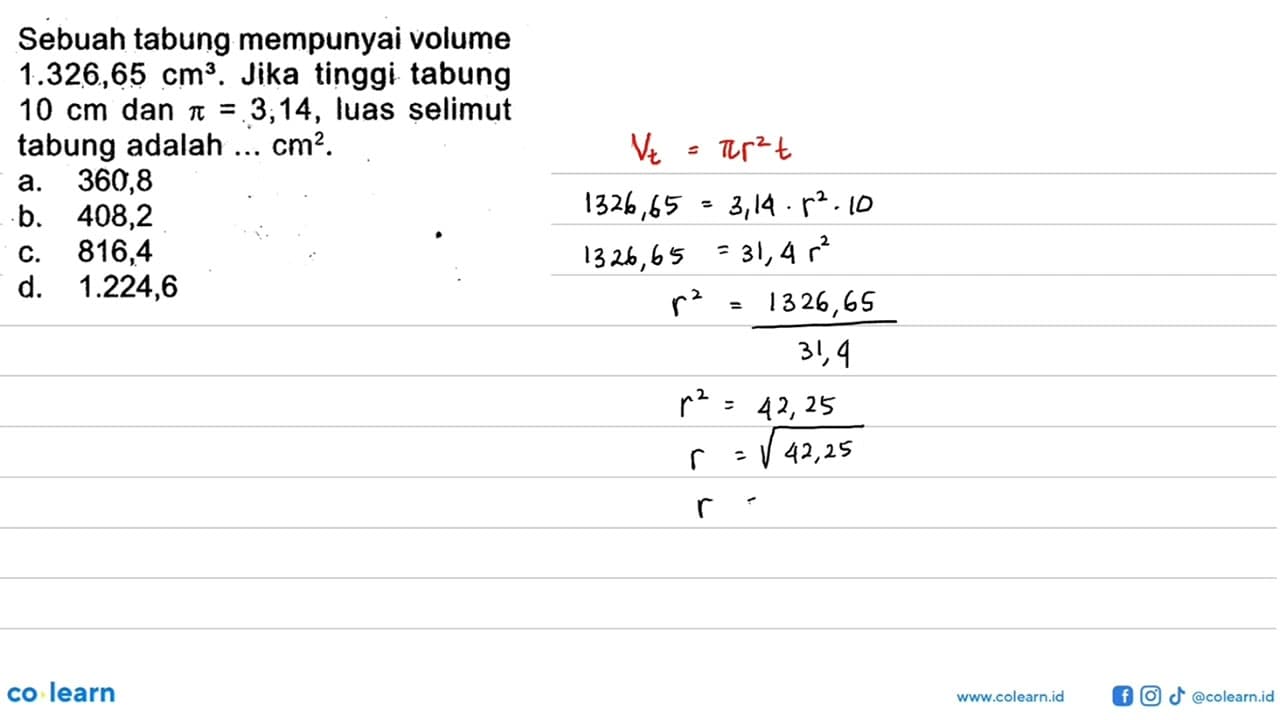 Sebuah tabung mempunyai volume
1.326,65 cm³. Jika tinggi tabung
10 cm dan π = 3,14, luas selimut
tabung adalah ... cm².
a. 360,8
b. 408,2
c. 816,4
d. 1.224,6
Vt = πr²t
1326,65 = 3,14 . r² . 10
1326,65 = 31,4 r²
r² = 1326,65
31,4
r² = 42,25
r = √42,25
r =
co learn
www.colearn.id
@colearn.id